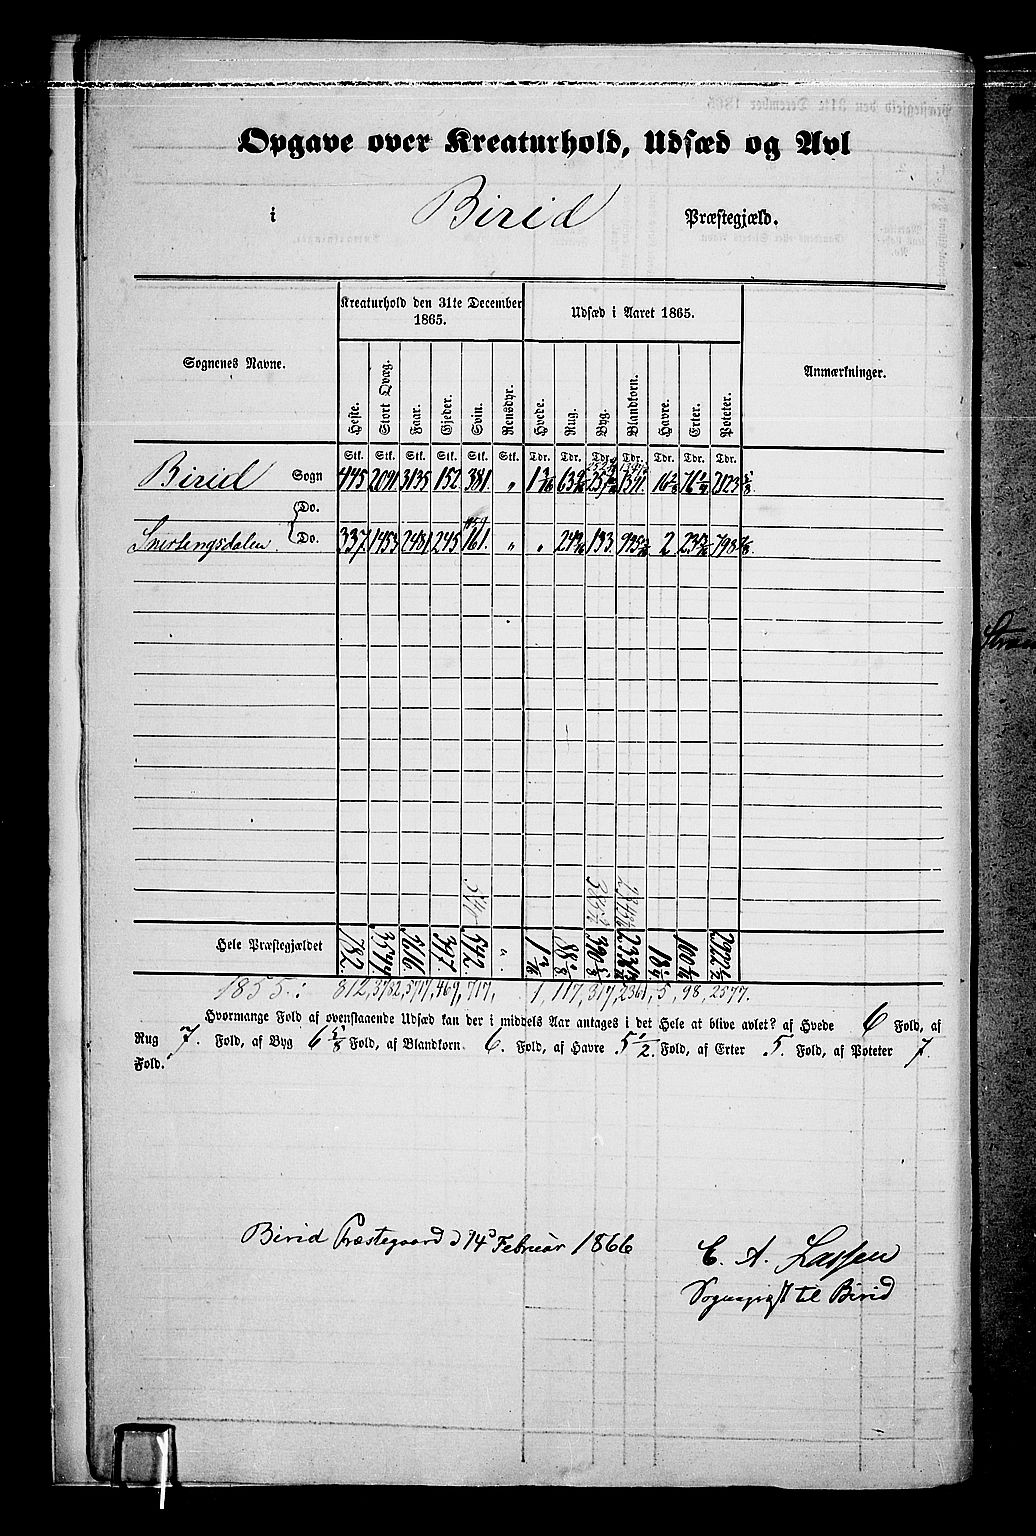 Opgave over Kreaturhold, Udsæd og Avl
i Birid Præstegjæld.
Sognenes Navne.
Kreaturhold den 31te December 1865.
Udsæd i Aaret 1865.
Anmærkninger.
Heste. Stort Qvæg. Faar. Gjeder. Svin. Rensdyr. Hvede. Rug. Byg. Blandkorn. Havre. Erter. Poteter.
Stk. Stk. Stk. Stk. Stk. Stk. Tdr. Tdr. Tdr. Tdr. Tdr. Tdr. Tdr.
Birid Sogn 445 2091 3135 152 381 "
Do.
Snertingsdalen Do. 337. 1453 2481 245 161. " " 133. 2
Hele Præstegjældet 782. 3544. 5616 397. 542. "
1855.: 812, 3782, 5717, 469, 717, 1, 117, 317, 2361, 5, 98, 2577.
Hvormange Fold af ovenstaaende Udsæd kan der i middels Aar antages i det Hele at blive avlet? af Hvede 6 Fold, af
Rug 7. Fold, af Byg 6 5/8 Fold, af Blandkorn 6. Fold, af Havre 5 1/2. Fold, af Erter 5. Fold, af Poteter 7.
Fold.
Birid Præstegaard d 14d Februar 1866
E. A. Lassen
Sognepræst til Birid